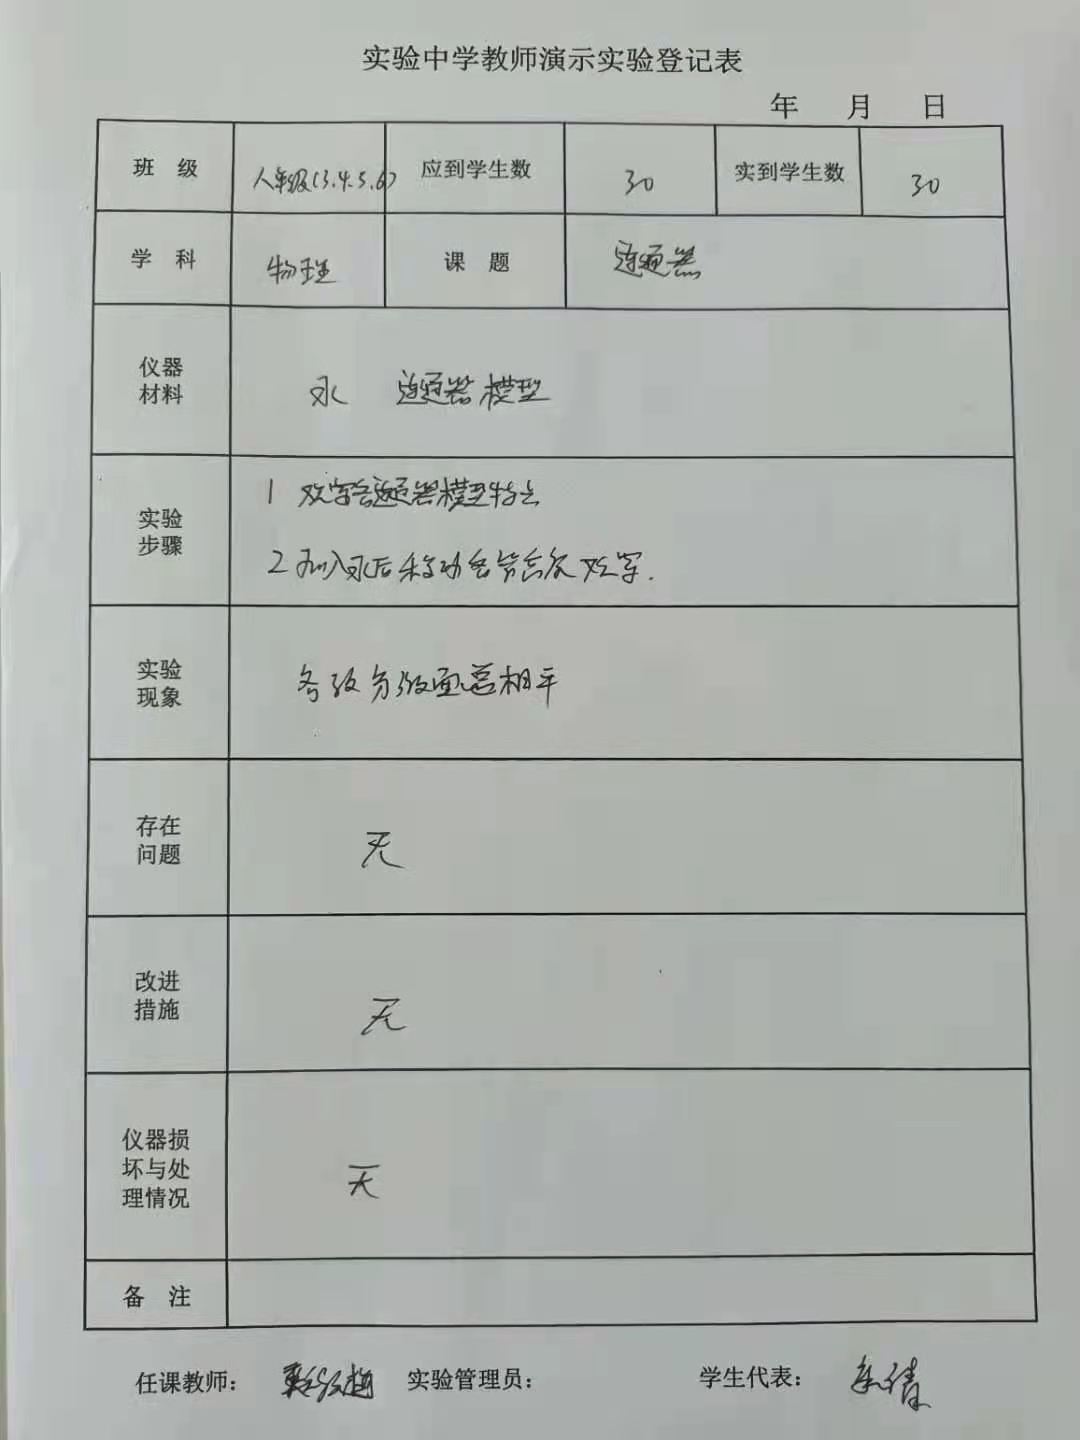 实验中学教师演示实验登记表
年 月 日
班 级 八年级(3.4.5.6) 应到学生数 30 实到学生数 30
学 科 物理 课 题 连通器
仪器
材料
水 连通器模型
实验
步骤
1 观察连通器模型特点
2 加入水后移动各管会观察.
实验
现象
各部分液面总相平
存在
问题
无
改进
措施
无
仪器损
坏与处
理情况
无
备 注
任课教师: 实验管理员: 学生代表: